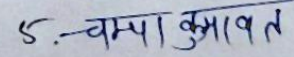 5. चम्पा कुमावत